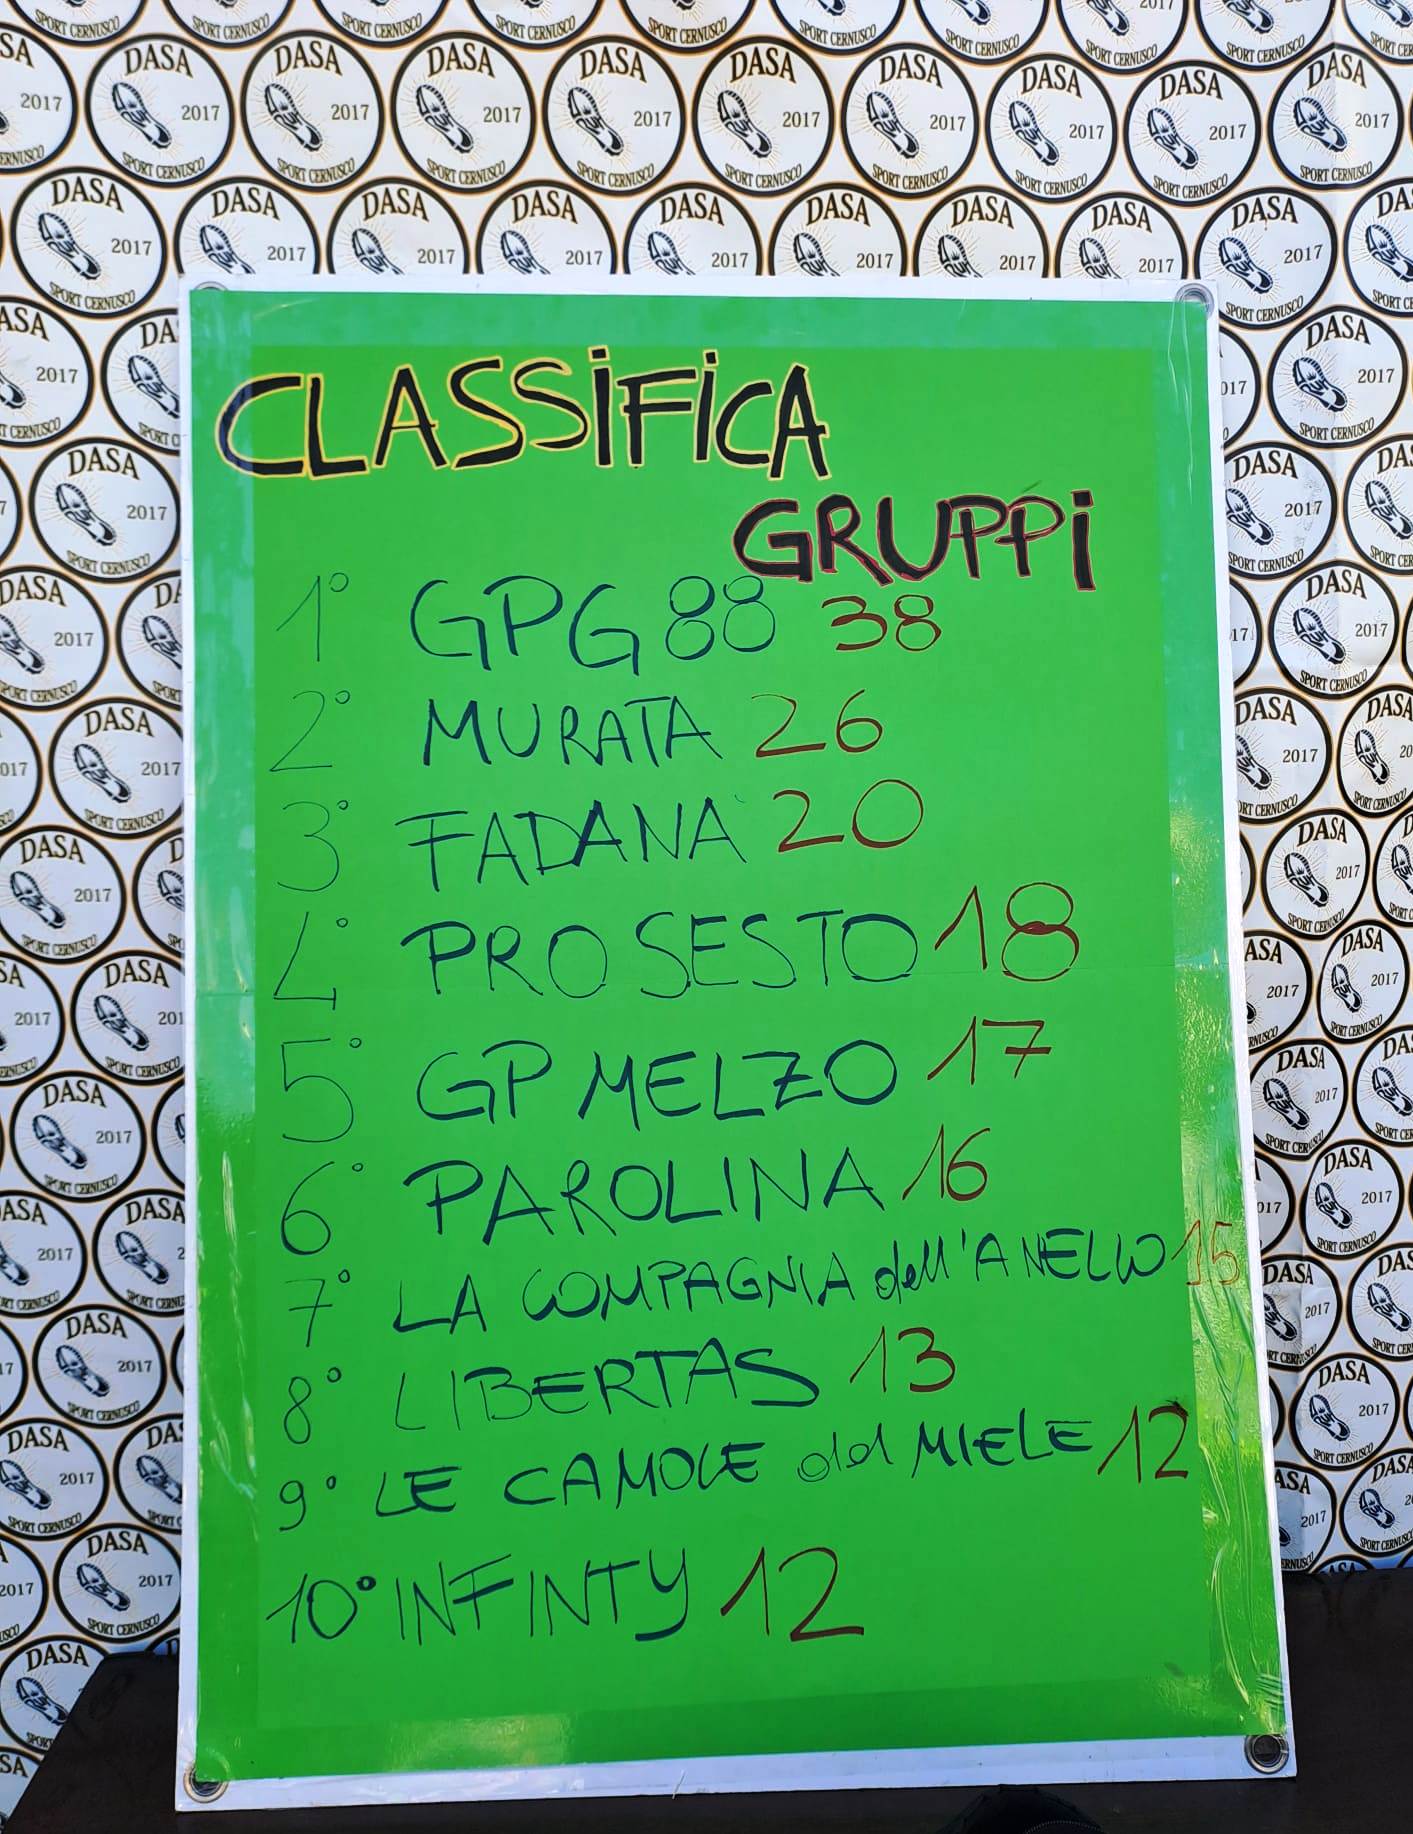 CLASSIFICA
GRUPPI
1° GPG 88 38
2° MURATA 26
3° FADANA 20
4° PRO SESTO 18
5° GP MELZO 17
6° PAROLINA 16
7° LA COMPAGNIA dell'ANELLO 15
8° LIBERTAS 13
9° LE CAMOLE del MIELE 12
10° INFINTY 12
DASA
2017
SPORT CERNUSCO